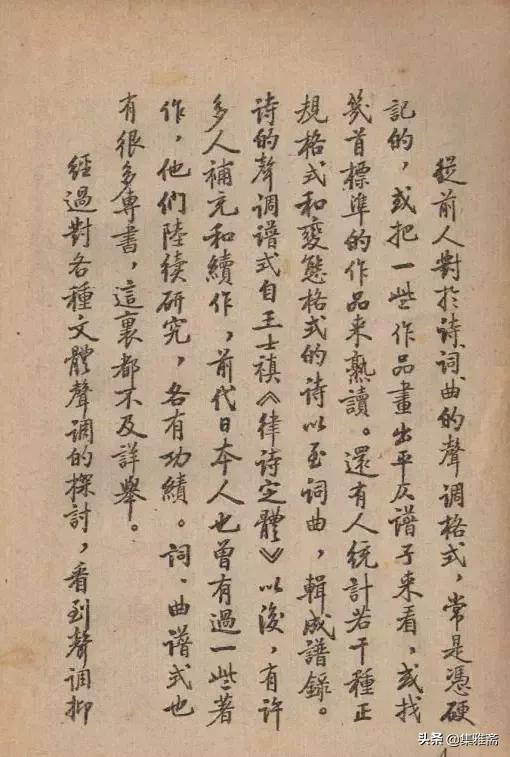 從前人對於詩詞曲的聲調格式，常是憑硬
記的，或把一些作品畫出平仄譜子來看，或找
幾首標準的作品来熟讀。還有人統計若干種正
規格式和變態格式的诗以至词曲，輯成譜錄。
诗的聲调谱式自王士禛《律诗定體》以後，有许
多人補充和續作，前代日本人也曾有過一些著
作，他們陸续研究，各有功績。词、曲谱式也
有很多專書，這裏都不及詳舉。
經過對各種文體聲調的探討，看到聲调抑
头条 @集雅斋